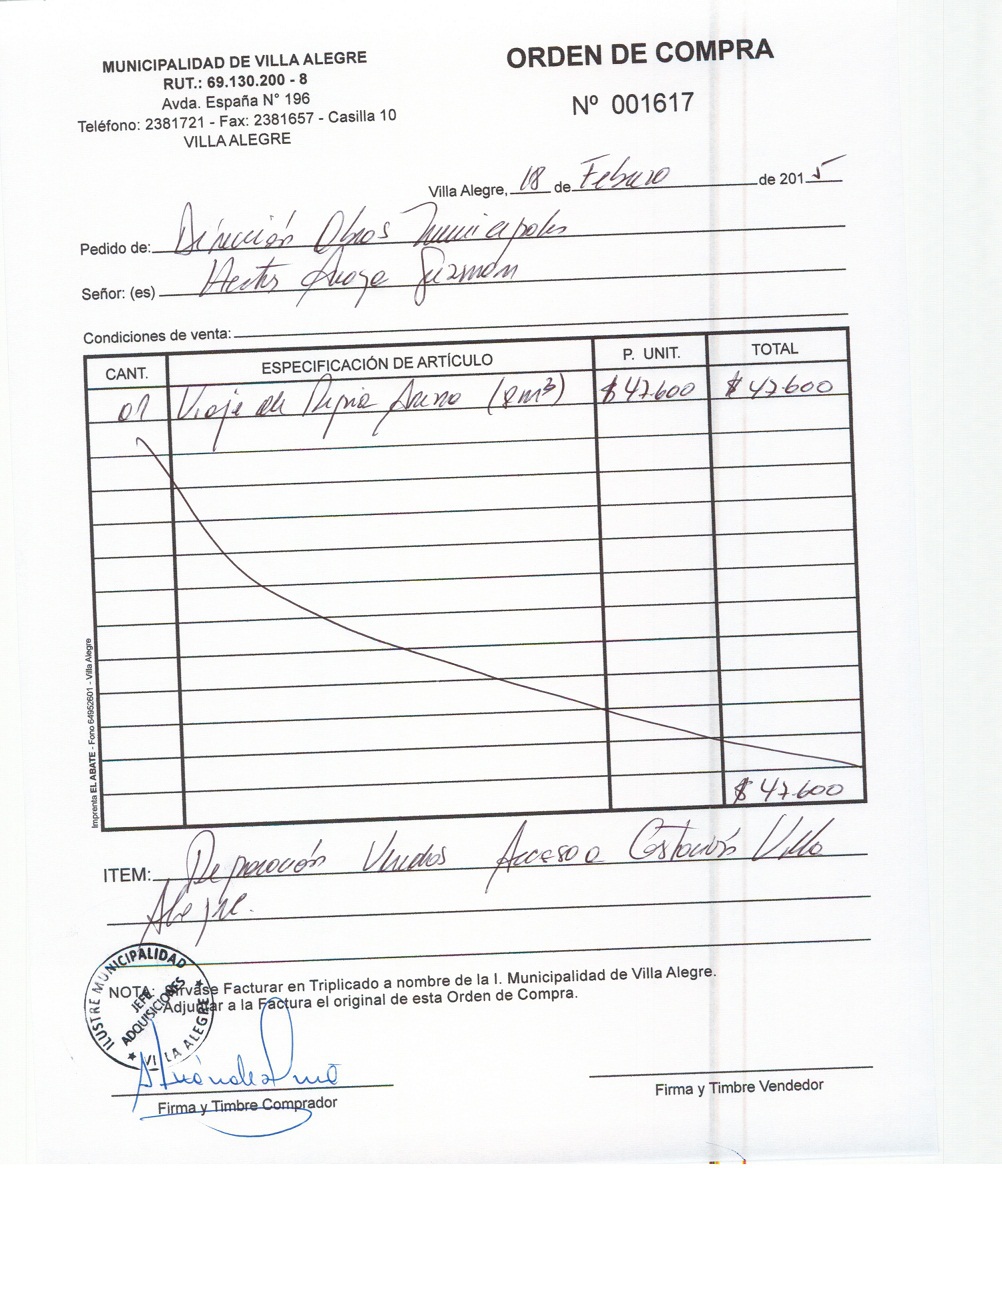 MUNICIPALIDAD DE VILLA ALEGRE
RUT.: 69.130.200 - 8
Avda. España N° 196
Teléfono: 2381721 - Fax: 2381657 - Casilla 10
VILLA ALEGRE
ORDEN DE COMPRA
Nº 001617
Villa Alegre, 18 de Febrero de 2015
Pedido de: Dirección Obras Municipales
Señor: (es) Hector Guzmán
Condiciones de venta:
CANT. ESPECIFICACIÓN DE ARTÍCULO P. UNIT. TOTAL
01 Viaje de Ripio Arena (8m³) $47.600 $47.600
$47.600
ITEM: Reparación Veredas Acceso a Estación Villa
Alegre.
NOTA: Sírvase Facturar en Triplicado a nombre de la I. Municipalidad de Villa Alegre.
Adjuntar a la Factura el original de esta Orden de Compra.
ILUSTRE MUNICIPALIDAD
JEFE
ADQUISICIONES
VILLA ALEGRE
Firma y Timbre Comprador
Firma y Timbre Vendedor
Imprenta EL ABATE - Fono 64952601 - Villa Alegre